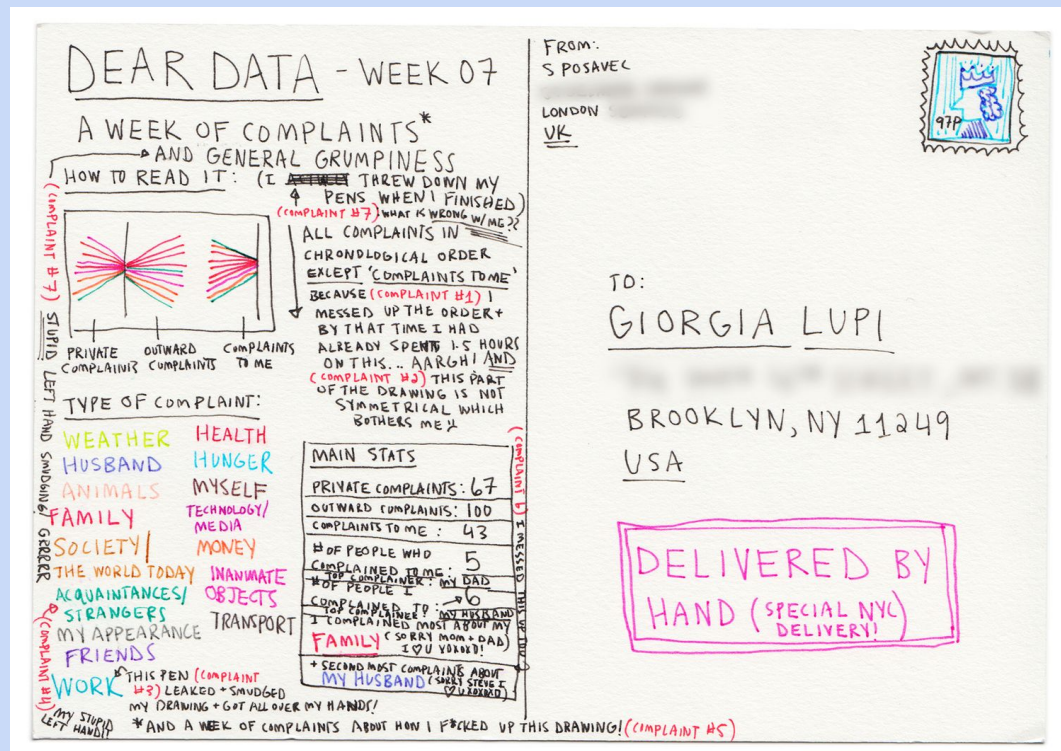 DEAR DATA - WEEK 07
A WEEK OF COMPLAINTS*
AND GENERAL GRUMPINESS
HOW TO READ IT:
(I THREW DOWN MY
PENS WHEN I FINISHED)
(COMPLAINT #7) WHAT IS WRONG W/ME??
PRIVATE COMPLAINTS
OUTWARD COMPLAINTS
COMPLAINTS TO ME
ALL COMPLAINTS IN
CHRONOLOGICAL ORDER
EXCEPT 'COMPLAINTS TO ME'
BECAUSE (COMPLAINT #1) I
MESSED UP THE ORDER +
BY THAT TIME I HAD
ALREADY SPENT 1.5 HOURS
ON THIS... AARGH! AND
(COMPLAINT #2) THIS PART
OF THE DRAWING IS NOT
SYMMETRICAL WHICH
BOTHERS ME
(COMPLAINT #7) STUPID LEFT HAND SMUDGING! GRRRRR
TYPE OF COMPLAINT:
WEATHER
HUSBAND
ANIMALS
FAMILY
SOCIETY/
THE WORLD TODAY
ACQUAINTANCES/
STRANGERS
MY APPEARANCE
FRIENDS
WORK
HEALTH
HUNGER
MYSELF
TECHNOLOGY/
MEDIA
MONEY
INANIMATE
OBJECTS
TRANSPORT
THIS PEN (COMPLAINT
#3) LEAKED + SMUDGED
MY DRAWING + GOT ALL OVER MY HANDS!
(COMPLAINT #4)
MY STUPID
LEFT HAND!!
MAIN STATS
PRIVATE COMPLAINTS: 67
OUTWARD COMPLAINTS: 100
COMPLAINTS TO ME: 43
# OF PEOPLE WHO
COMPLAINED TO ME: 5
TOP COMPLAINER: MY DAD
# OF PEOPLE I
COMPLAINED TO: 6
TOP COMPLAINEE: MY HUSBAND
I COMPLAINED MOST ABOUT MY
FAMILY (SORRY MOM + DAD)
I ♡ U XOXOXO!
+ SECOND MOST COMPLAINTS ABOUT
MY HUSBAND (SORRY STEVE I
♡ U XOXOXO)
(COMPLAINT 6) I MESSED THIS UP TOO
*AND A WEEK OF COMPLAINTS ABOUT HOW I F*CKED UP THIS DRAWING! (COMPLAINT #5)
FROM:
S POSAVEC
LONDON
UK
97P
TO:
GIORGIA LUPI
BROOKLYN, NY 11249
USA
DELIVERED BY
HAND (SPECIAL NYC
DELIVERY!)